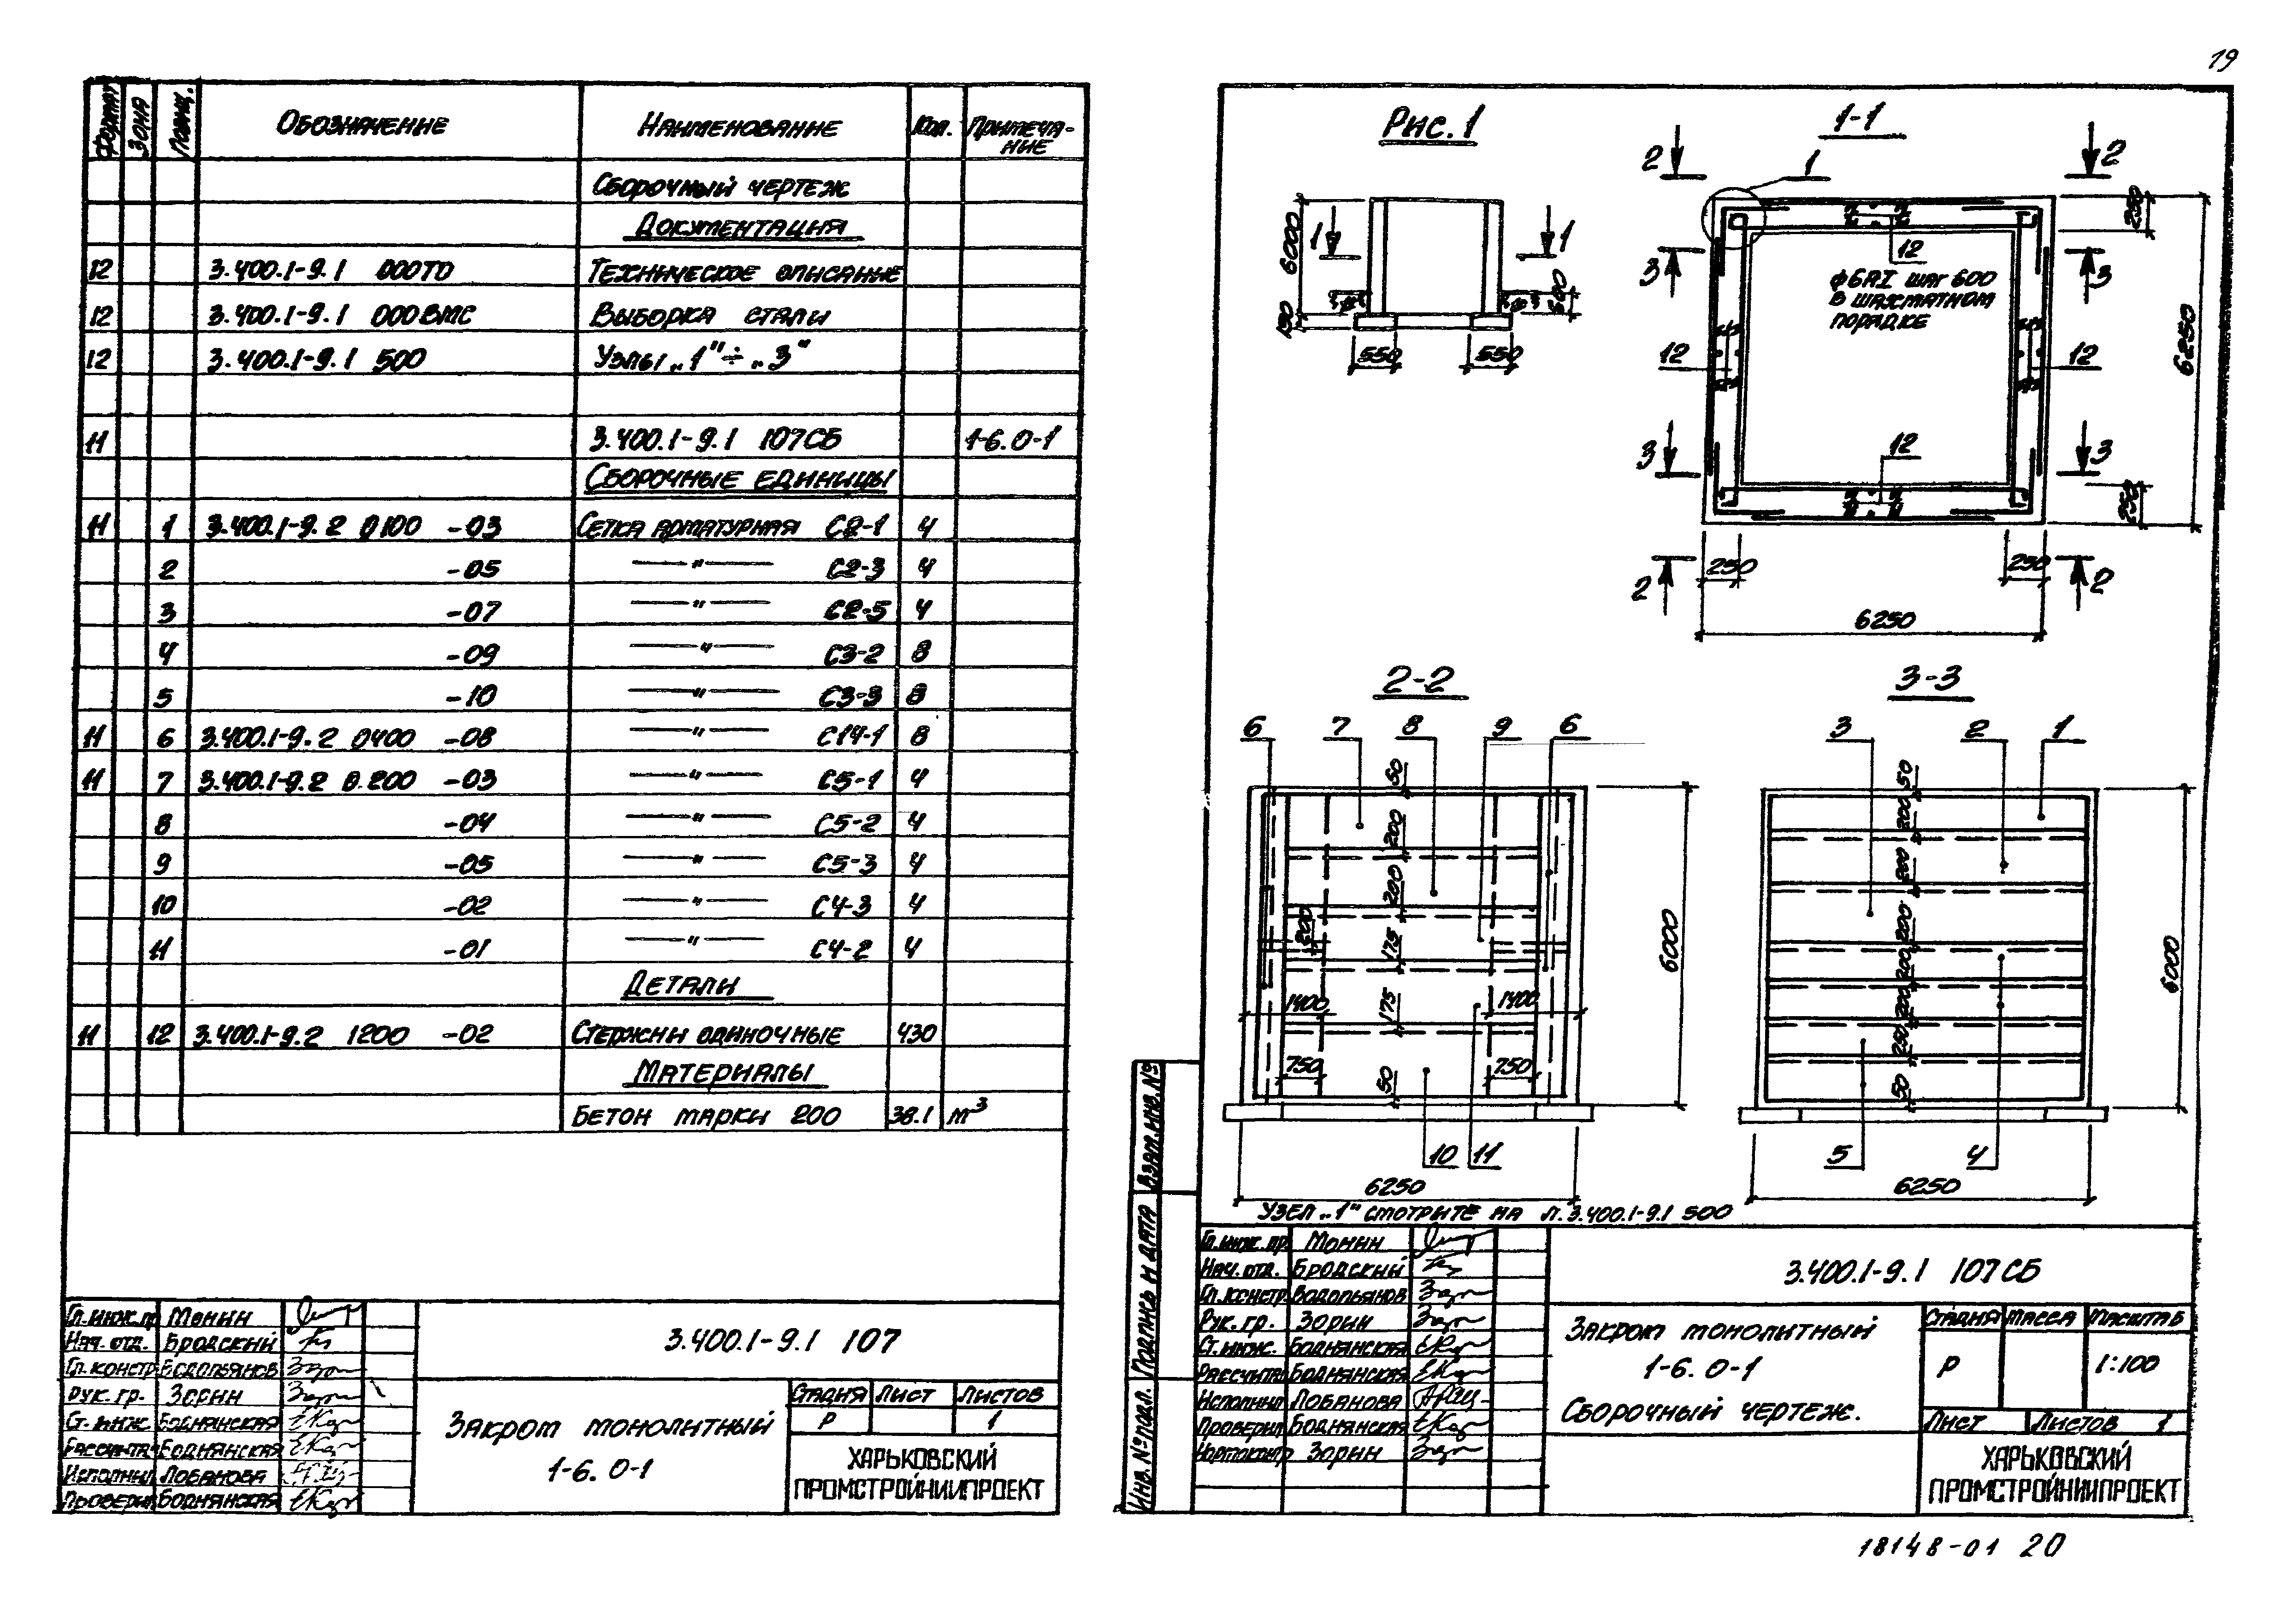 19
Формат Зона Позиц. Обозначение Наименование Кол. Примеча-
ние
Сборочный чертеж
Документация
12 3.400.1-9.1 000ТО Техническое описание
12 3.400.1-9.1 000ВМС Выборка стали
12 3.400.1-9.1 500 Узлы „1"÷„3"
11 3.400.1-9.1 107СБ 1-6.0-1
Сборочные единицы
11 1 3.400.1-9.2 0100 -03 Сетка арматурная С2-1 4
2 -05 —"— С2-3 4
3 -07 —"— С2-5 4
4 -09 —"— С3-2 8
5 -10 —"— С3-3 8
11 6 3.400.1-9.2 0400 -08 —"— С14-1 8
11 7 3.400.1-9.2 0.200 -03 —"— С5-1 4
8 -04 —"— С5-2 4
9 -05 —"— С5-3 4
10 -02 —"— С4-3 4
11 -01 —"— С4-2 4
Детали
11 12 3.400.1-9.2 1200 -02 Стержни одиночные 430
Материалы
Бетон марки 200 38.1 м³
Гл. инж. пр Монин
Нач. отд. Бродский
Гл. констр Водопьянов
Рук. гр. Зорин
Ст. инж. Боднянская
Рассчитал Боднянская
Исполнил Лобанова
Проверил Боднянская
3.400.1-9.1 107
Закром монолитный
1-6.0-1
Стадия Лист Листов
Р 1
ХАРЬКОВСКИЙ
ПРОМСТРОЙНИИПРОЕКТ
Рис. 1
6000
150
1 1
500
550 550
1-1
2 2
1
250
3 3
12
ф6АI шаг 600
в шахматном
порядке
6250
12 12
12
3 3
250
250 250
2 2
6250
2-2
6 7 8 9 6
50
200
200
200
175
175
1400 1400
750 750
50
6000
10 11
6250
3-3
3 2 1
50
200
200
200
200
200
250
50
6000
5 4
6250
Узел „1" смотрите на л. 3.400.1-9.1 500
Взам. инв. №
Подпись и дата
Инв. № подл.
Гл. инж. пр. Монин
Нач. отд. Бродский
Гл. констр. Водопьянов
Рук. гр. Зорин
Ст. инж. Боднянская
Рассчитал Боднянская
Исполнил Лобанова
Проверил Боднянская
Нормоконтр Зорин
3.400.1-9.1 107СБ
Закром монолитный
1-6.0-1
Сборочный чертеж.
Стадия Масса Масштаб
Р 1:100
Лист Листов 1
ХАРЬКОВСКИЙ
ПРОМСТРОЙНИИПРОЕКТ
18148-01 20